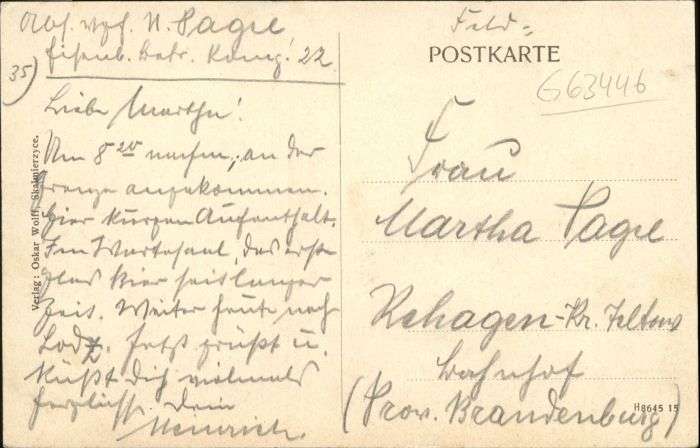 Abs. Uffz. H. Page
Eisenb. Betr. Komp. 22
35)
Liebe Martha!
Um 8 20 nachm. an der
Grenze angekommen.
Hier kurzen Aufenthalt.
Im Wartesaal, das erste
Glas Bier seit langer
Zeit. Weiter heute nach
Lodz. Jetzt grüßt u.
küßt Dich vielmals
herzlichst Dein
Heinrich.
Verlag: Oskar Wolff, Skalmierzyce.
Feld-
POSTKARTE
G63446
Frau
Martha Page
Rehagen-Kr. Teltow
Bahnhof
(Prov. Brandenburg)
H8645 15